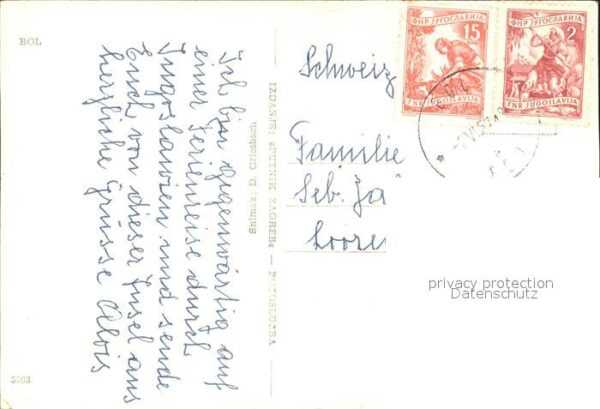 BOL
Ich bin gegenwärtig auf
einer Ferienreise durch
Jugoslawien und sende
Euch von dieser Insel aus
herzliche Grüsse Alois
3503
Snimak: D. Griesbach
IZDANJE: »PUTNIK ZAGREB« — FOTOSLUŽBA
ФНР ЈУГОСЛАВИЈА
15
TNR JUGOSLAVIJA
ФНР ЈУГОСЛАВИЈА
2
FNR JUGOSLAVIJA
Schweiz
Familie
Seb.
privacy protection
Datenschutz